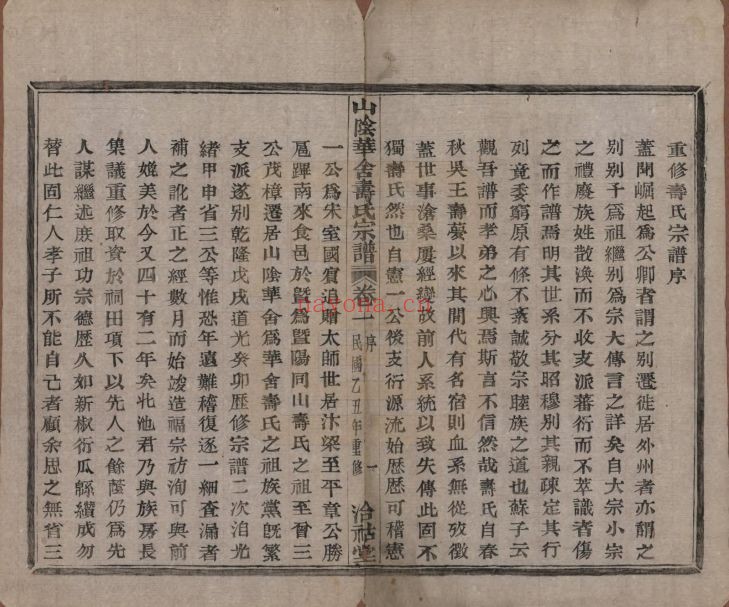 重修壽氏宗譜序
蓋聞崛起爲公卿者謂之別遷徙居外州者亦謂之
別別子爲祖繼別爲宗大傳言之詳矣自大宗小宗
之禮廢族姓散渙而不收支派蕃衍而不萃識者傷
之而作譜焉明其世系分其昭穆別其親疎定其行
列竟委窮原有條不紊誠敬宗睦族之道也蘇子云
觀吾譜而孝弟之心興焉斯言不信然哉壽氏自春
秋吳王壽夢以來其間代有名宿則血系無從攷徵
蓋世事滄桑屢經變故前人系統以致失傳此固不
獨壽氏然也自憲一公後支衍源流始歷歷可稽憲
山陰華舍壽氏宗譜 卷一 序 民國乙丑年重修 一 洽祉堂
一公爲宋室國賓追贈太師世居汴梁至平章公勝
扈蹕南來食邑於暨爲暨陽同山壽氏之祖至晉三
公茂樟遷居山陰華舍爲華舍壽氏之祖族黨旣繁
支派遂別乾隆戊戌道光癸卯歷修宗譜二次洎光
緒甲申省三公等惟恐年遠難稽復逐一細查漏者
補之訛者正之經數月而始竣造福宗祊洵可與前
人媲美於今又四十有二年矣牝池君乃與族房長
集議重修取資於祠田項下以先人之餘蔭仍爲先
人謀繼述庶祖功宗德歷久如新椒衍瓜緜纘成勿
替此固仁人孝子所不能自已者顧余思之無省三
nayona.cn